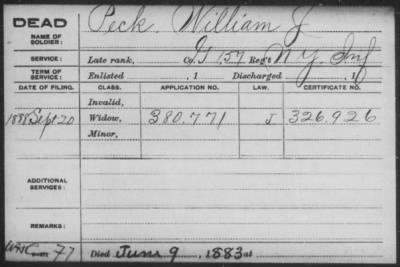 DEAD
NAME OF SOLDIER: Peck, William J
SERVICE: Late rank, Co. G 157 Reg't N Y Inf
TERM OF SERVICE: Enlisted , 1 Discharged , 1
DATE OF FILING. CLASS. APPLICATION NO. LAW. CERTIFICATE NO.
Invalid,
1888 Sept 20 Widow, 380.771 J 326.926
Minor,
ADDITIONAL SERVICES:
REMARKS:
77 Died June 9 , 1883 at